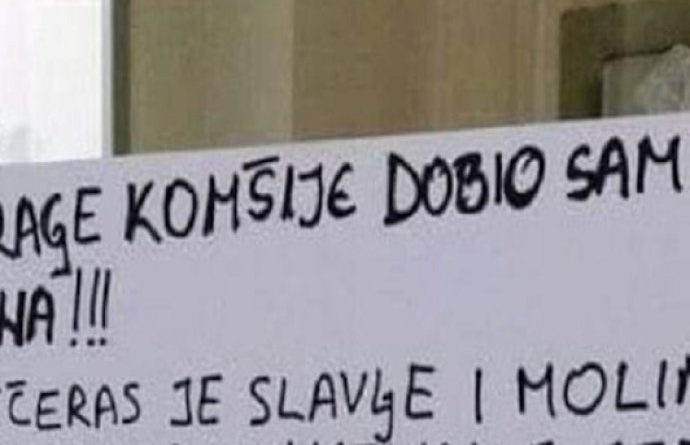 RAGE KOMŠIJE DOBIO SAM
NA!!!
ČERAS JE SLAVLJE I MOLI